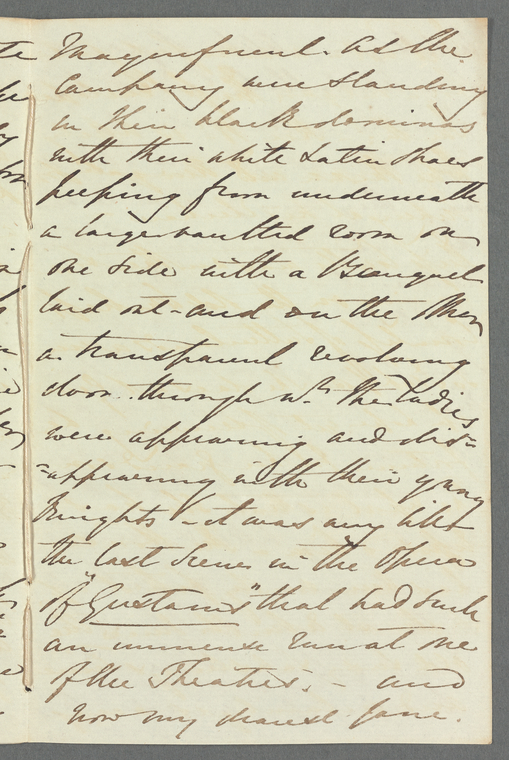 Magnificent. As the
Company were standing
in their black dominos
with their white Satin Shoes
peeping from underneath
a large vaulted room on
one side with a Banquet
laid out - and on the other
a transparent revolving
door through wh the Ladies
were appearing and dis=
=appearing with their young
Knights - it was very like
the last Scene in the Opera
of "Gustavus" that had such
an immense run at one
of the Theatres. - and
now my dearest Jane.